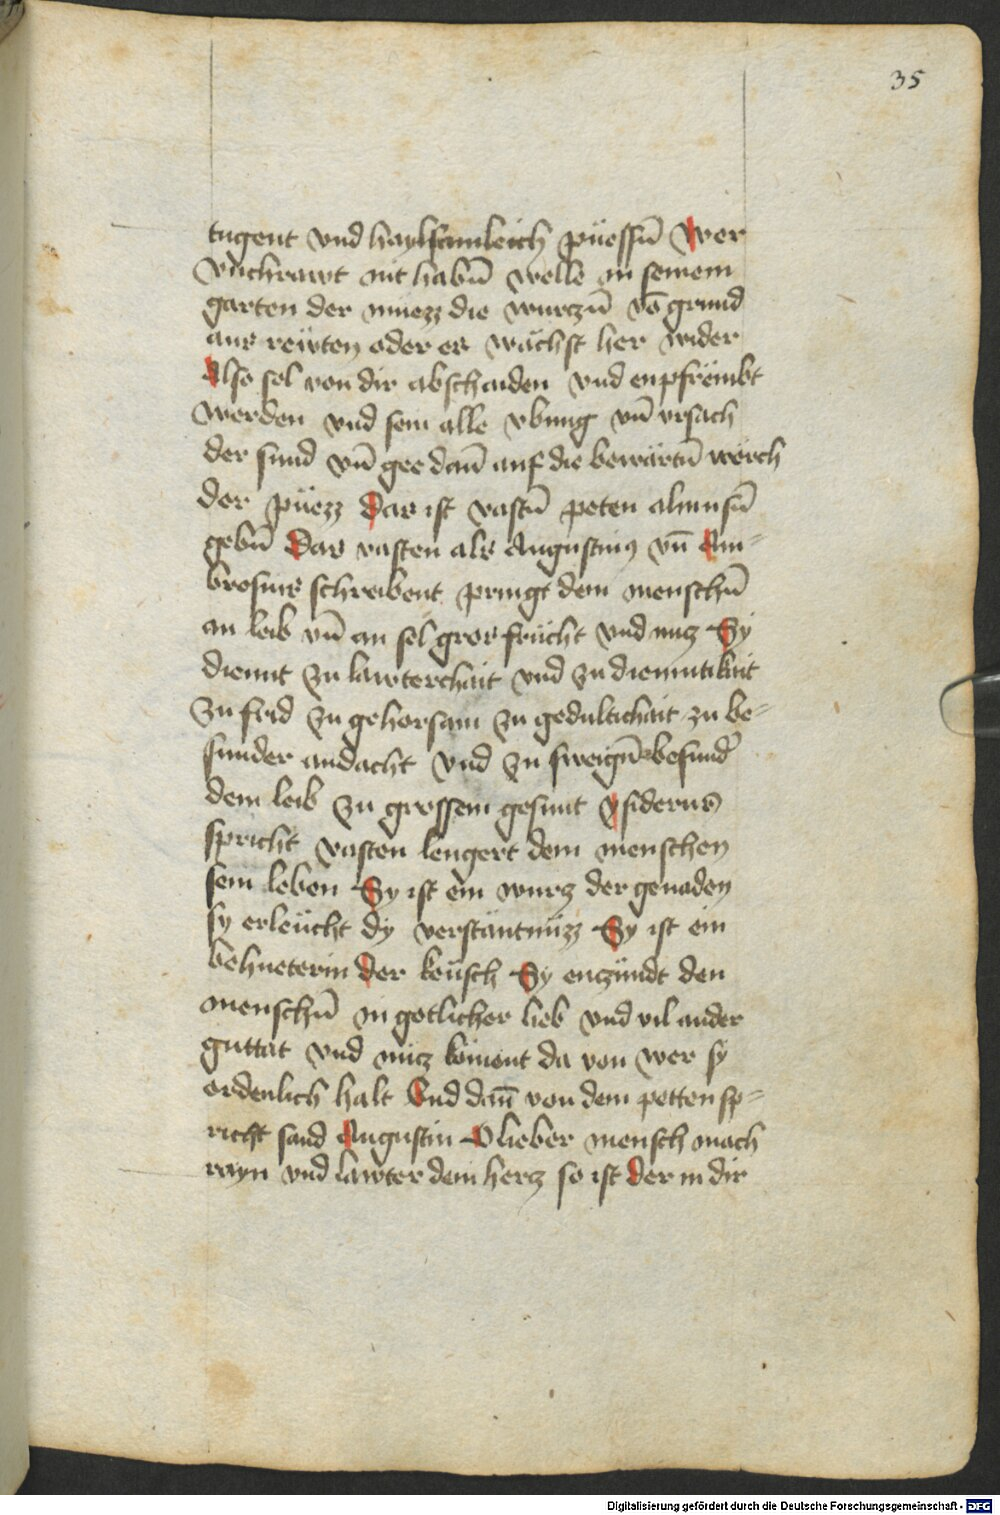 35
tugent vnd haylsamleich püessn̄ Wer
vnchrawt nit habn̄ welle in seinem
garten der muezz die wurczn̄ vō grund
aus reẅten oder es wachst her wider
Also sol von dir abschaiden vnd enpfrömbt
werden vnd sein alle vbung vn̄ vrsach
der sund vn̄ gee dan̄ auf die bewärtn̄ werch
der püezz Das ist vastn̄ peten almusn̄
gebn̄ Das vasten als Augustinus vn̄ Am-
brosius schreibent pringt dem menschn̄
an leib vn̄ an sel gros frücht vnd nucz Sy
dient zu lawterchait vnd zu diemutikait
zu frid zu gehorsam zu gedultichait zu be-
sunder andacht vnd zu sweign̄ besunder
dem leib zu grossem gesunt ysiderus
spricht vasten lengert dem menschen
sein leben Sy ist ein wurcz der genaden
sy erleücht dy verstäntnüzz Sy ist ein
behueterin der keüsch Sy enczündt den
menschn̄ in gotlicher lieb vnd vil ander
guttat vnd nucz kōment da von wer sy
ordenlich halt Vnd dan̄ von dem petten sp-
richt sand Augustin O lieber mensch mach
rayn vnd lawter dein hercz so ist der in dir
Digitalisierung gefördert durch die Deutsche Forschungsgemeinschaft - DFG